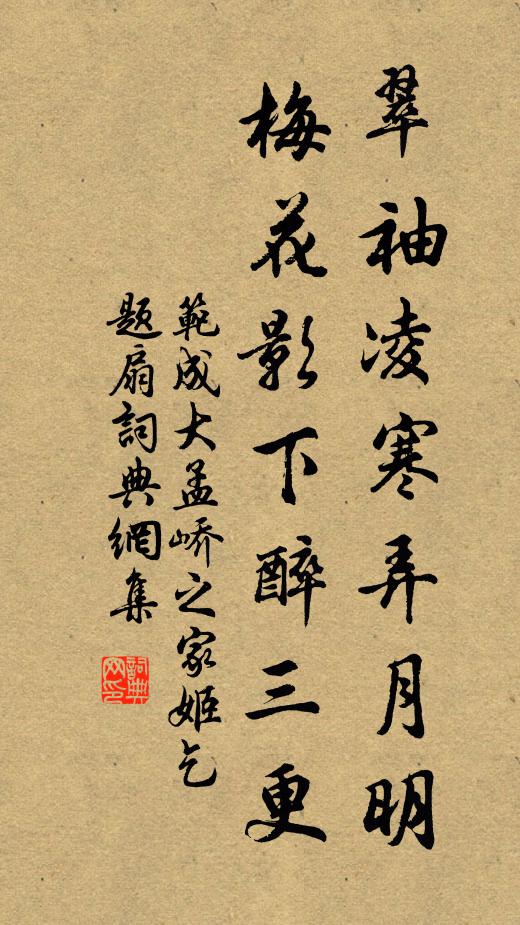 翠袖凌寒弄月明
梅花影下醉三更
範成大孟嶠之家姬乞
題扇詞典網集
詞典网印